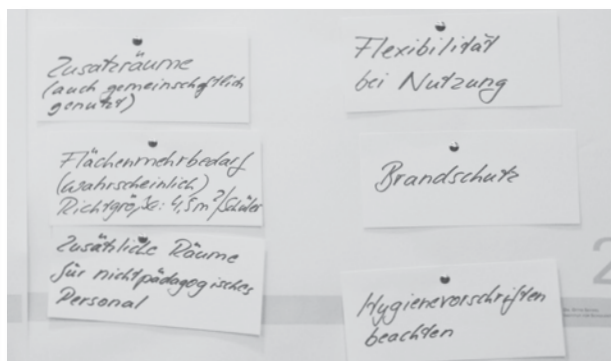 Zusatzräume
(auch gemeinschaftlich
genutzt)
Flächenmehrbedarf
(wahrscheinlich)
Richtgröße: 4,5m²/Schüler
Zusätzliche Räume
für nichtpädagogisches
Personal
Flexibilität
bei Nutzung
Brandschutz
Hygienevorschriften
beachten
2